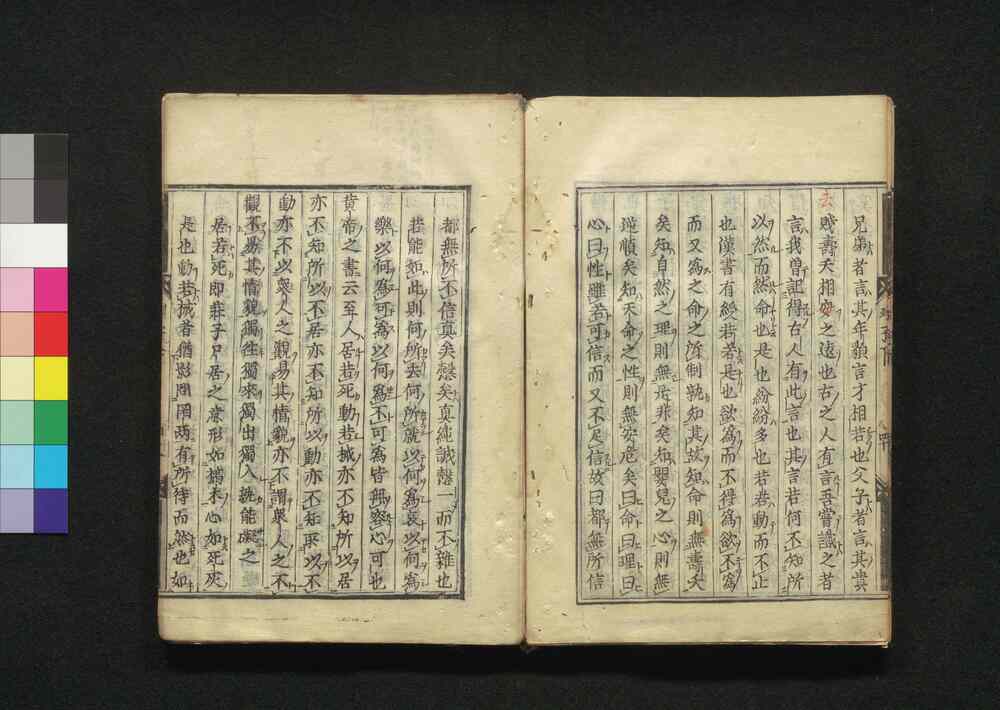 兄弟者言其年貌言才相若也父子者言其貴
賤壽夭相安之遠也古之人有言吾嘗識之者
言我曾記得古人有此言也其言若何不知所
以然而然命也是也紛紛多也若若動而不止
也漢書有綬若若是也欲為而不得為欲不為
而又為之命之所制孰知其故知命則無壽夭
矣知自然之理則無是非矣知嬰兒之心則無
逆順矣知天命之性則無安危矣曰命曰理曰
心曰性雖若可信而又不足信故曰都無所信
都無所不信真矣慤矣真純誠慤一而不雜也
若能知此則何所去何所就以何為哀以何為
樂以何為可為以何為不可為皆無容心可也
黃帝之書云至人居若死動若械亦不知所以居
亦不知所以不居亦不知所以動亦不知所以不
動亦不以衆人之觀易其情貌亦不謂衆人之不
觀不易其情貌獨往獨來獨出獨入孰能礙之
居若死即莊子尸居之意形如槁木心如死灰
是也動若械者猶影問罔兩有所待而然也如